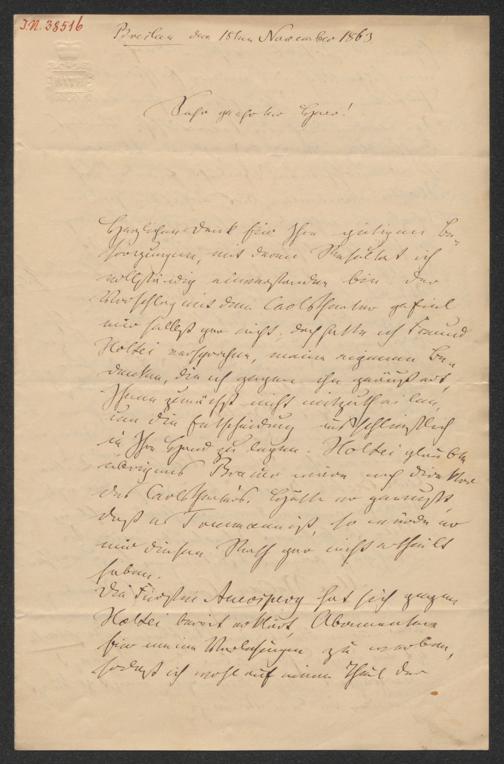 J.N. 38516
Breslau den 18ten November 1863
Sehr geehrter Herr!
Herzlichen Dank für Ihre gütigen Be-
sorgungen, mit deren Resultat ich
vollständig einverstanden bin der
Vorschlag mit dem Carlstheater gefiel
mir selbst gar nicht, doch hatte ich Freund
Holtei versprochen, meine eigenen Be-
denken, die ich gegen ihn geäußert,
Ihnen zunächst nicht mitzutheilen,
um die Entscheidung ausschließlich
in Ihre Hand zu legen. Holtei glaubte
übrigens Brauer wäre noch Direktor
des Carlstheaters. Hätte er gewußt,
daß es Treumann ist, so würde er
mir diesen Rath gar nicht ertheilt
haben.
Die Fürstin Auersperg hat sich gegen
Holtei bereit erklärt, Abonnenten
für meine Vorlesungen zu werben,
sodaß ich wohl auf einen Theil der